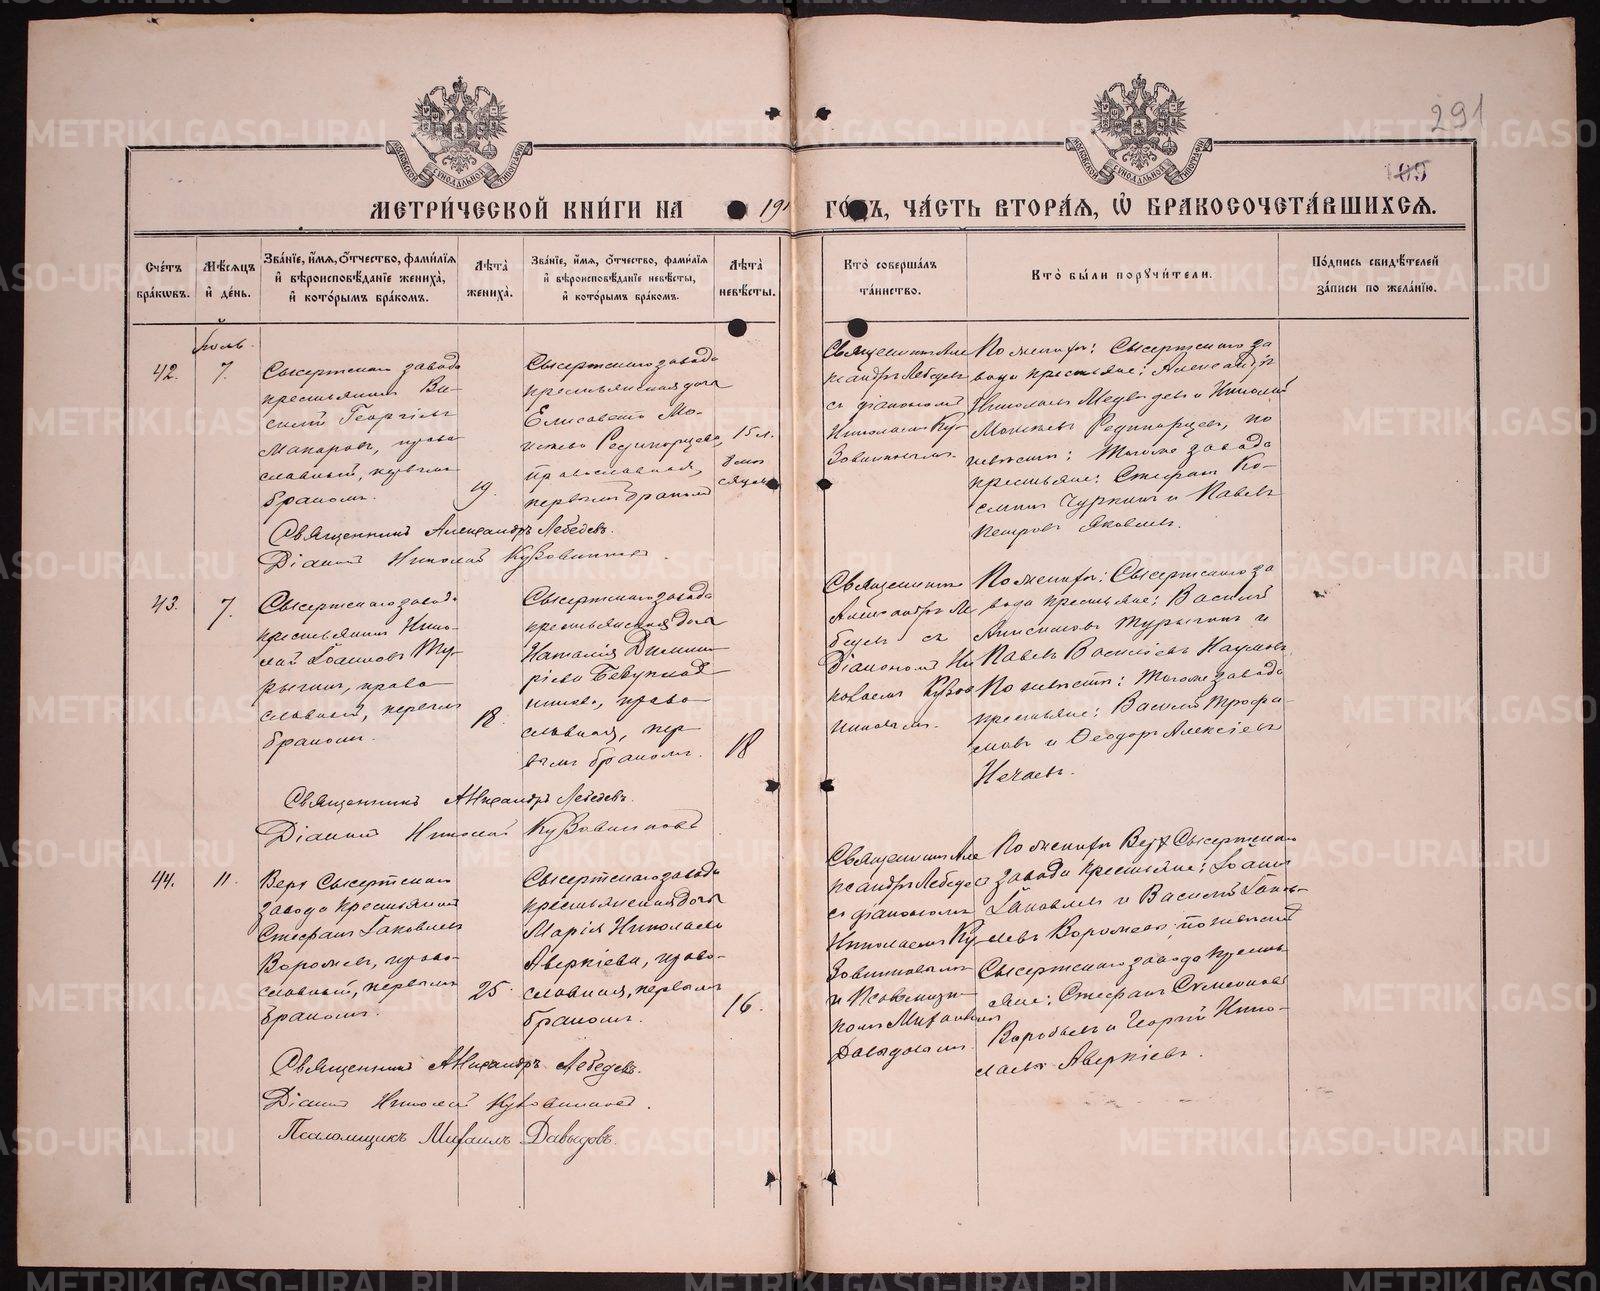 291
109
МЕТРИ́ЧЕСКОЙ КНИ́ГИ НА 191 ГО́ДЪ, ЧА́СТЬ ВТОРА́Я, Ѽ БРАКОСОЧЕТА́ВШИХСЯ.
МОСКОВСКОЙ СѴНОДАЛЬНОЙ ТИПОГРАФІИ
МОСКОВСКОЙ СѴНОДАЛЬНОЙ ТИПОГРАФІИ
Сче́тъ бра́кѡвъ.
Мѣ́сяцъ и҆ де́нь.
Зва́нїе, и҆́мя, ѻ҆́тчество, фами́лїя и҆ вѣроисповѣ́данїе жениха̀, и҆ кото́рымъ бра́комъ.
Лѣ́та жениха̀.
Зва́нїе, и҆́мя, ѻ҆́тчество, фами́лїя и҆ вѣроисповѣ́данїе невѣ́сты, и҆ кото́рымъ бра́комъ.
Лѣ́та невѣ́сты.
Кто̀ соверша́лъ та́инство.
Кто̀ бы́ли порꙋчи́тели.
По́дпись свидѣ́телей за́писи по жела́нїю.
Іюль
42.
7.
Сысертскаго завода
крестьянинъ Ва-
силій Георгіевъ
Макаровъ, право
славный, первымъ
бракомъ.
19.
Сысертскаго завода
крестьянская дочь
Елисавета Мо-
исеева
православная,
первымъ бракомъ
15 л.
сяцевъ
Священникъ Але
ксандръ Лебедевъ
съ діакономъ
Николаемъ Ку-
зовниковымъ.
По женихѣ: Сысертскаго за
вода крестьяне: Александръ
Николаевъ Медвѣдевъ и Николай
Моисеевъ по
невѣстѣ: тогоже завода
крестьяне: Стефанъ Ко-
Чуркинъ и Павелъ
Петровъ Яковлевъ.
Священникъ Александръ Лебедевъ.
Діаконъ Николай Кузовниковъ.
43.
7.
Сысертскаго завода
крестьянинъ Нико-
лай Іоанновъ Ту-
рыгинъ, право
славный, первымъ
бракомъ.
18.
Сысертскаго завода
крестьянская дочь
Наталія Димит
ріева
право
славная, пер
вымъ бракомъ.
18
Священникъ
Александръ Ле
бедевъ съ
Діакономъ Ни
колаемъ Кузов
никовымъ.
По женихѣ: Сысертскаго за
вода крестьяне: Василій
Анисимовъ Турыгинъ и
Павелъ Васильевъ Наумовъ
По невѣстѣ: тогоже завода
крестьяне: Василій Трофи-
мовъ и Ѳеодоръ Алексѣевъ
Нечаевъ.
Священникъ Александръ Лебедевъ.
Діаконъ Николай Кузовниковъ
44.
11.
Верх Сысертскаго
завода крестьянинъ
Стефанъ Іаковлевъ
право-
славный, первымъ
бракомъ.
25.
Сысертскаго завода
крестьянская дочь
Марія Николаева
Аверкіева, право-
славная, первымъ
бракомъ.
16.
Священникъ Але
ксандръ Лебедевъ
съ діакономъ
Николаемъ Ку-
зовниковымъ
и Псаломщи-
комъ Михаиломъ
Давыдовымъ.
По женихѣ Верх Сысертскаго
завода крестьяне: Іоаннъ
Іаковлевъ и Василій Іаков-
левъ по невѣстѣ
Сысертскаго завода кресть
яне: Стефанъ Симеоновъ
Воробьевъ и Георгій Нико-
лаевъ Аверкіевъ.
Священникъ Александръ Лебедевъ.
Діаконъ Николай Кузовниковъ.
Псаломщикъ Михаилъ Давыдовъ.
METRIKI.GASO-URAL.RU